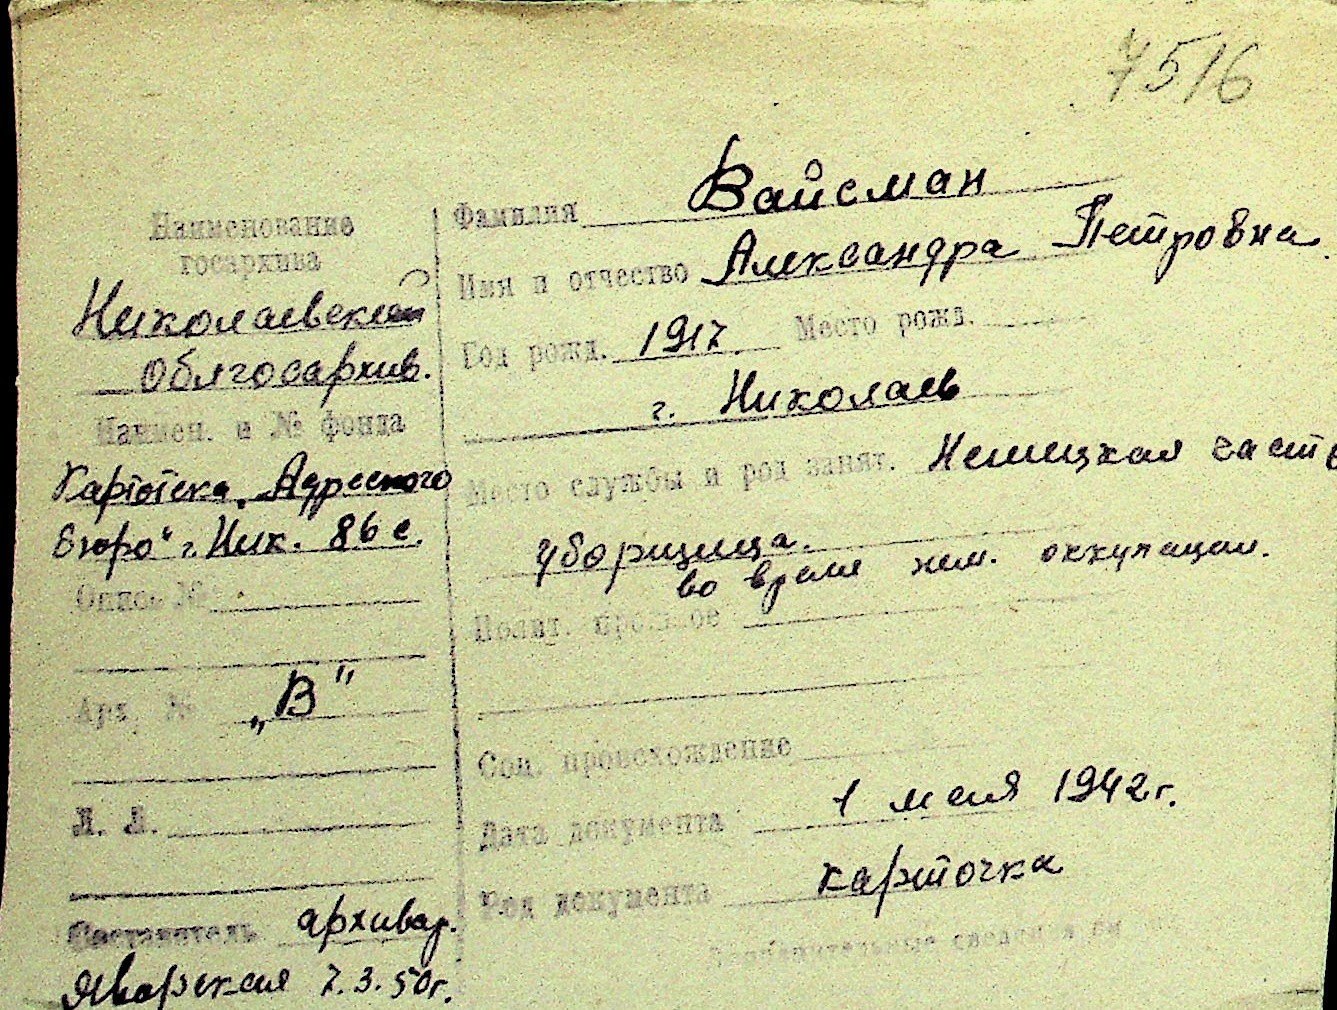 7516
Наименование
госархива
Николаевский
Облгосархив.
Наимен. и № фонда
Картотека „Адресного
бюро“ г. Ник. 86 с.
Опись №
Арх. №
„В“
Л. Л.
Составитель архивар.
Яворская 7.3.50г.
Фамилия Вайсман
Имя и отчество Александра Петровна
Год рожд. 1917 Место рожд.
г. Николаев
Место службы и род занят. Немецкая часть
уборщица.
во время нем. оккупации.
Полит. прошлое
Соц. происхождение
Дата документа 1 мая 1942г.
Род документа карточка
Дополнительные сведения на